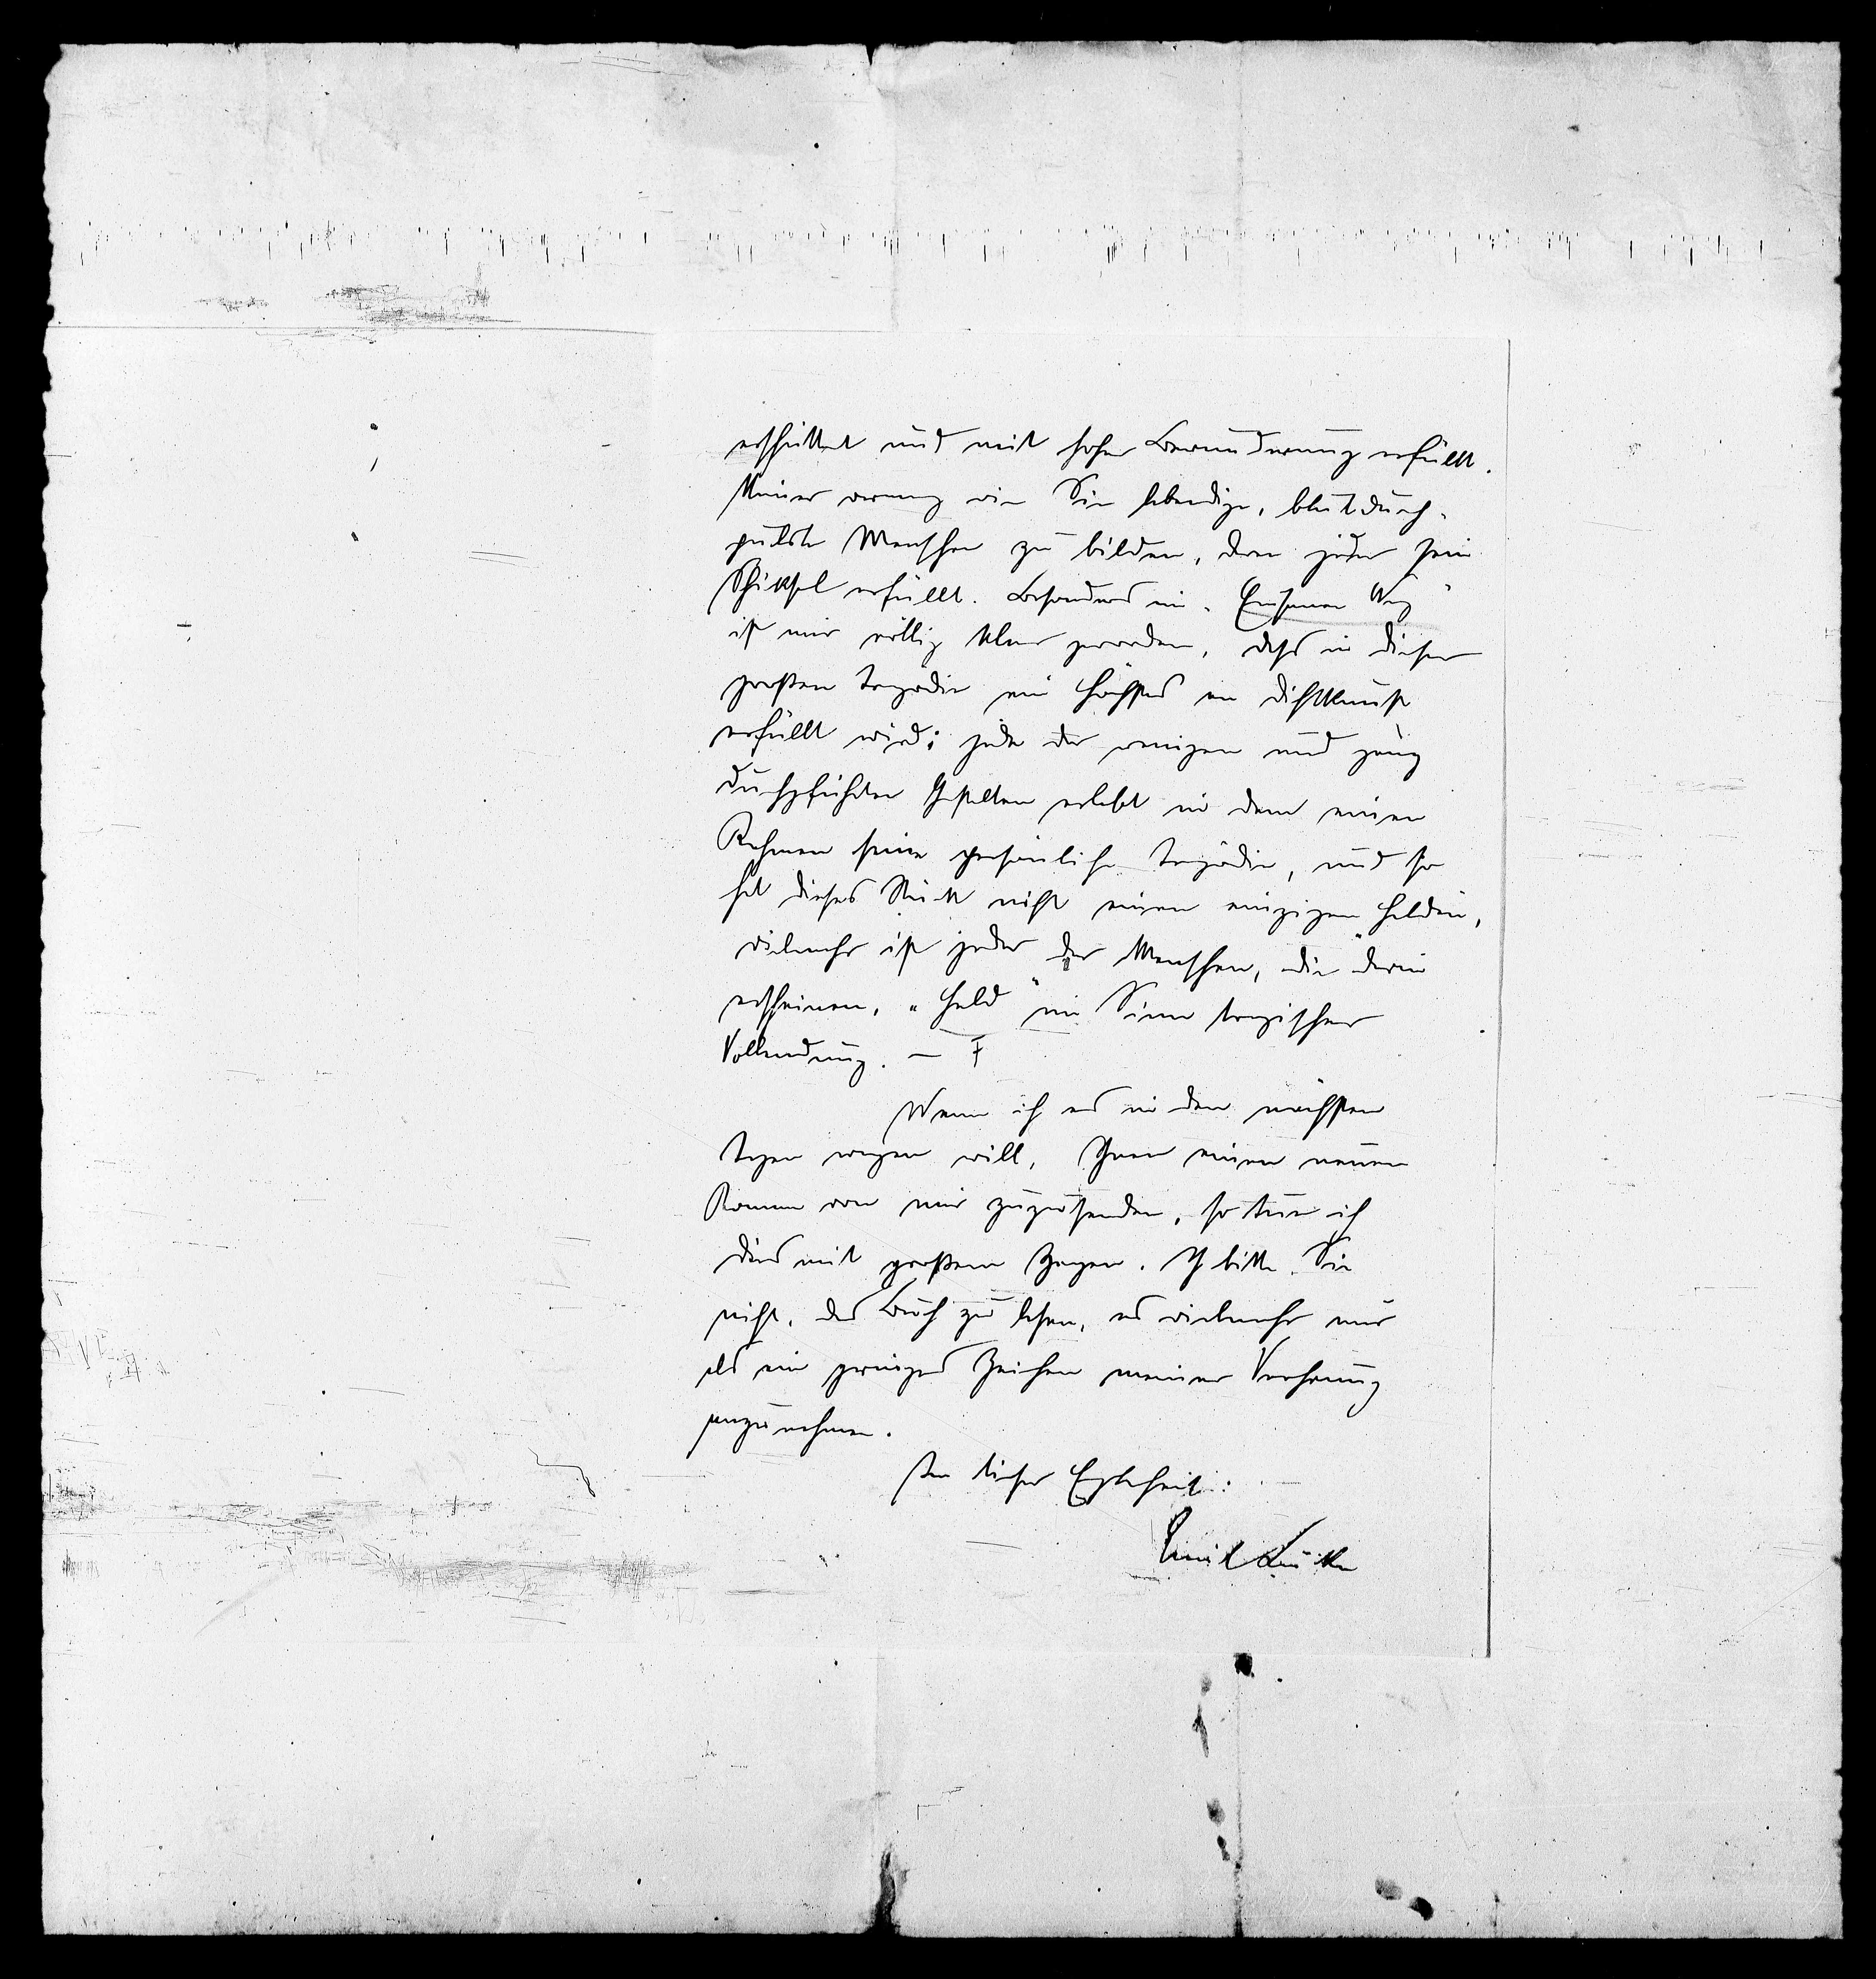 erschüttert und mit hoher Bewunderung erfüllt.
Keiner vermag wie Sie lebendige, blutdurch-
pulste Menschen zu bilden, deren jeder sein
Schicksal erfüllt. Besonders im „Einsamen Weg"
ist mir völlig klar geworden, dass in dieser
großen Tragödie ein Höchstes an Dichtkunst
erfüllt wird; jede der wenigen und ganz
durchgeführten Gestalten erlebt in dem einen
Rahmen seine persönliche Tragödie, und so
hat dieses Stück nicht einen einzigen „Helden",
vielmehr ist jeder der Menschen, die darin
erscheinen, „Held" im Sinne tragischer
Vollendung. —
Wenn ich es in den nächsten
Tagen wagen will, Ihnen einen neuen
Roman von mir zuzusenden, so tue ich
dies mit großem Zagen. Ich bitte Sie
nicht, das Buch zu lesen, es vielmehr nur
als ein geringes Zeichen meiner Verehrung
anzunehmen.
In tiefer Ergebenheit:
Emil Lucka